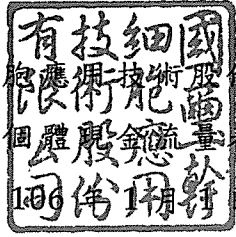 國璽幹
細胞應用
技術股份
有限公司
胞應用技術股
個體現金流量
106 年 1 月 1